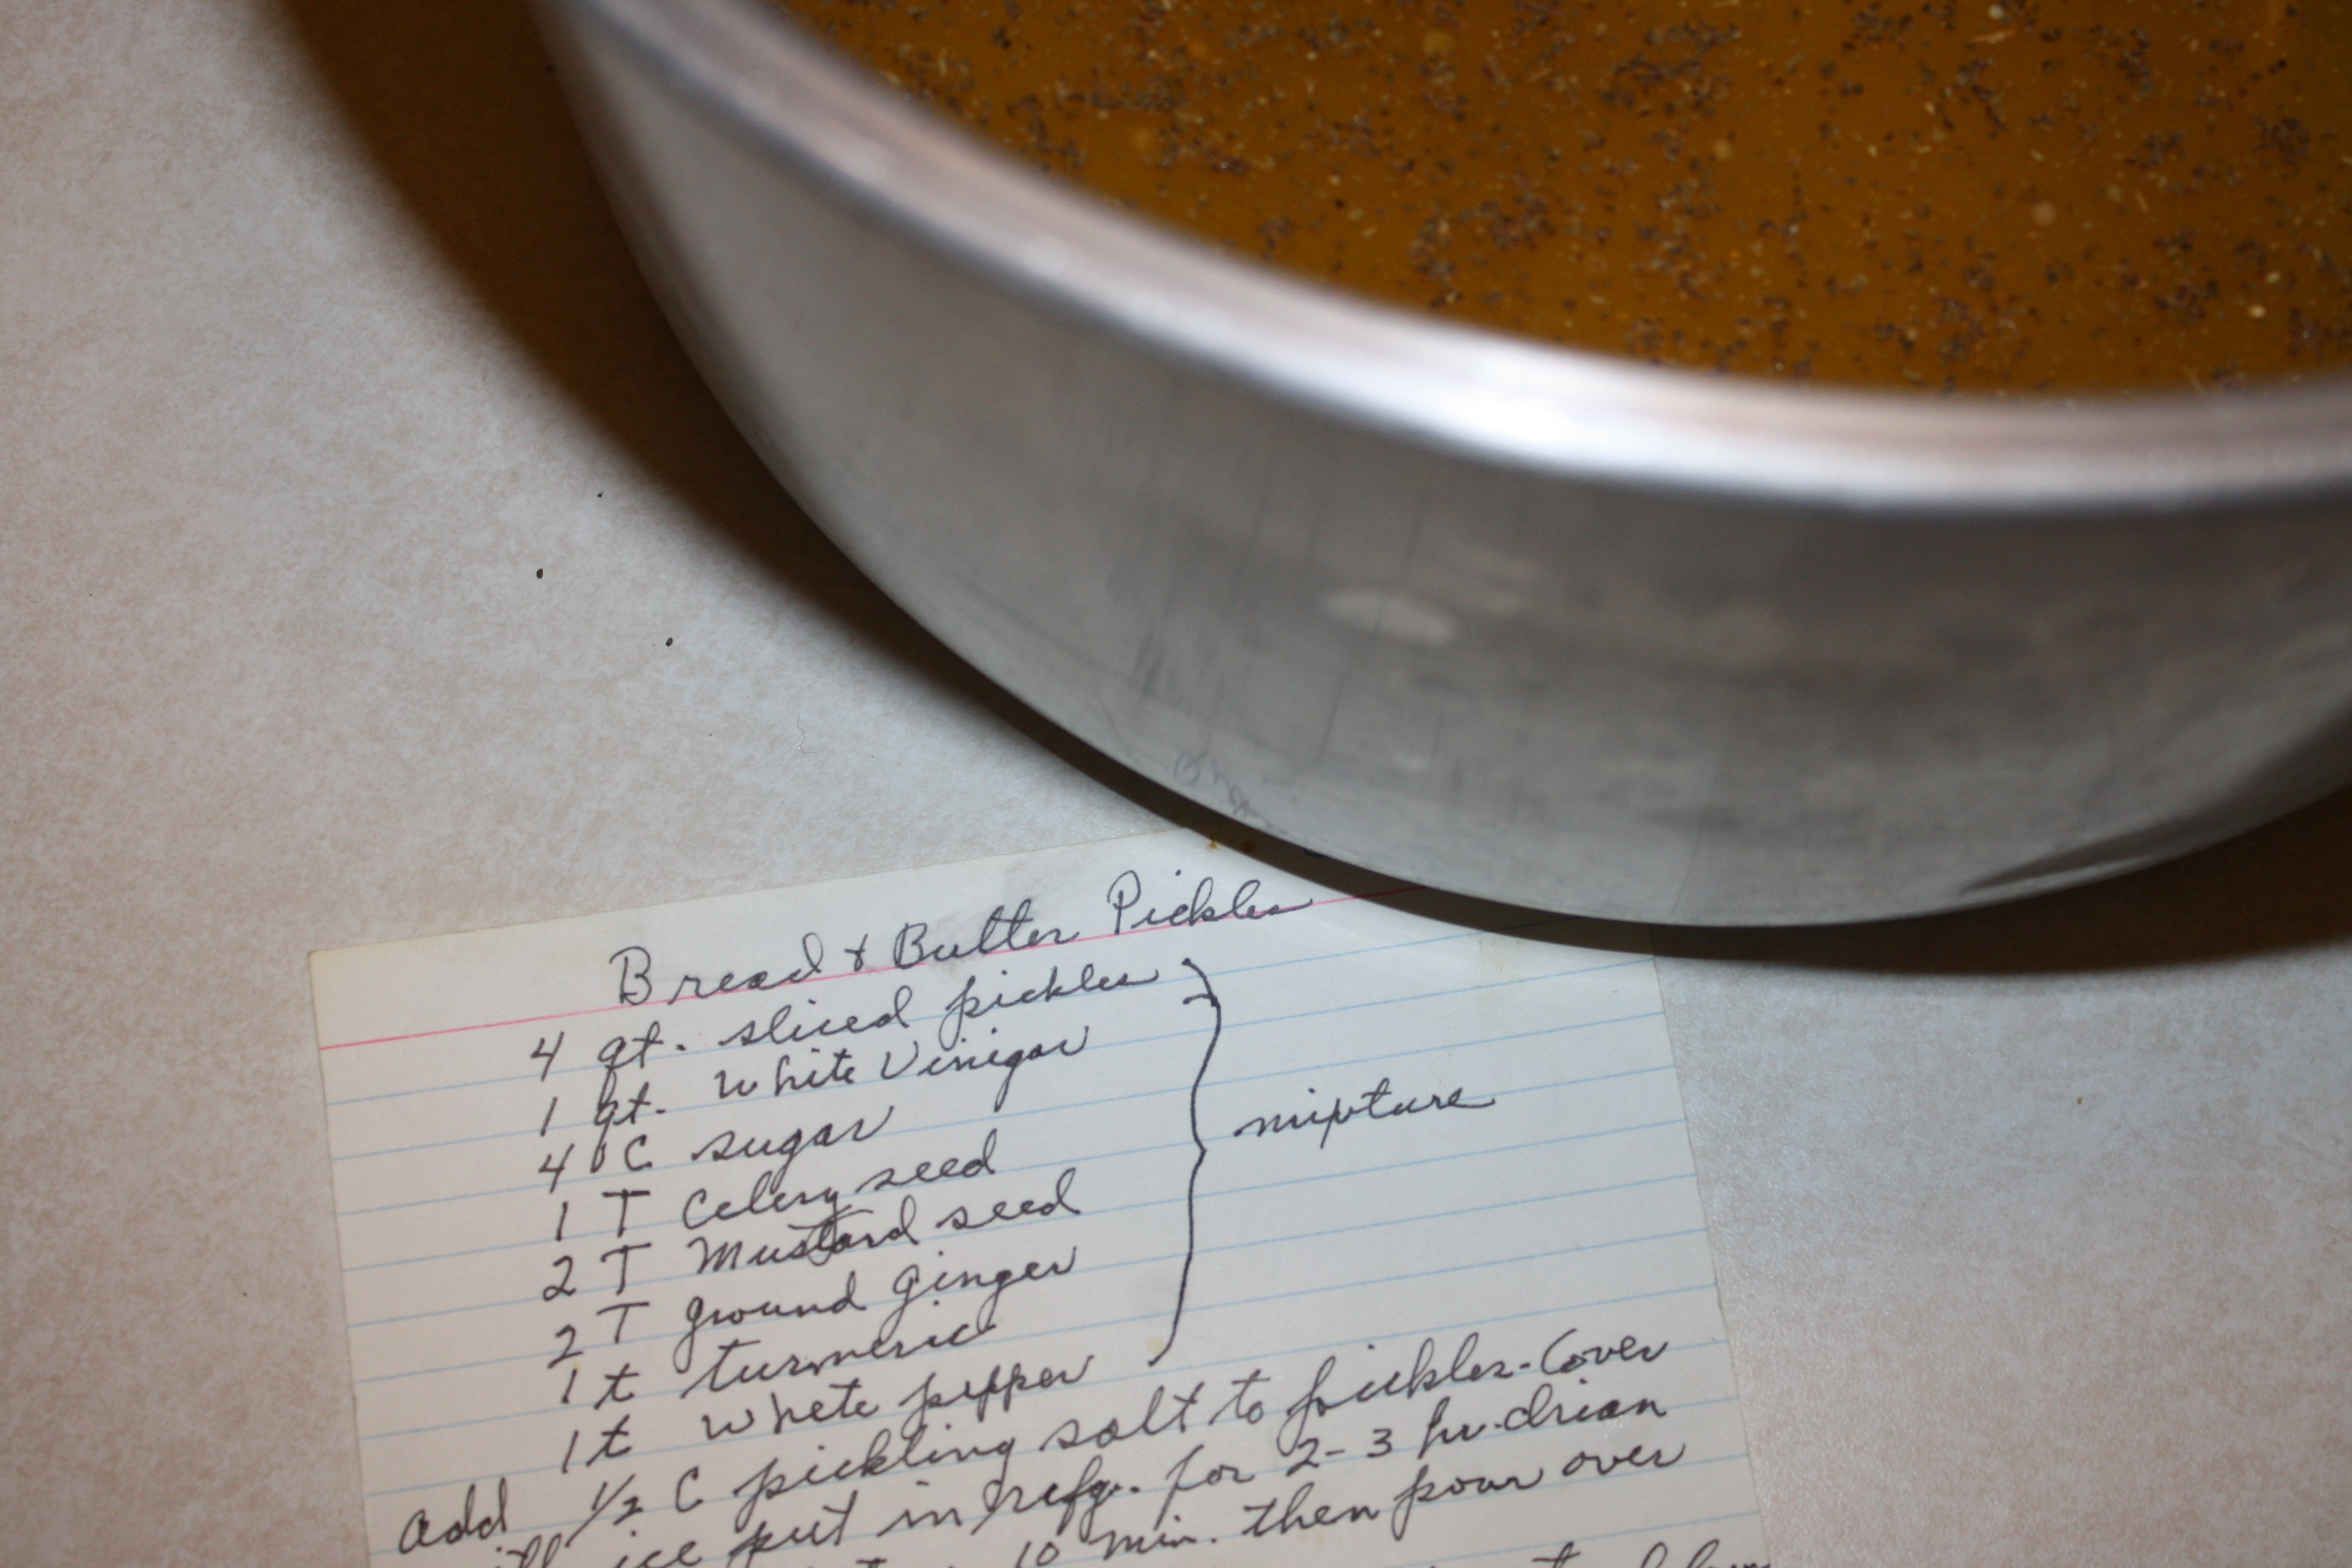 Bread & Butter Pickles
4 qt. sliced pickles
1 qt. white Vinigar
4 C sugar
1 T Celery seed
2 T Mustard seed
2 T ground ginger
1 t turmeric
1 t white pepper
mixture
Add 1/2 C pickling salt to pickles - Cover
ice put in refg. for 2-3 hr. drian
10 min. then pour over